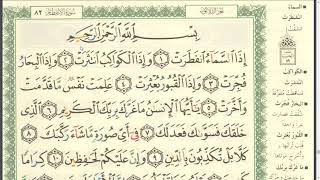 سورة الانفطار ٨٢
بِسْمِ اللَّهِ الرَّحْمَٰنِ الرَّحِيمِ
إِذَا السَّمَاءُ انفَطَرَتْ ١ وَإِذَا الْكَوَاكِبُ انتَثَرَتْ ٢ وَإِذَا الْبِحَارُ
فُجِّرَتْ ٣ وَإِذَا الْقُبُورُ بُعْثِرَتْ ٤ عَلِمَتْ نَفْسٌ مَّا قَدَّمَتْ
وَأَخَّرَتْ ٥ يَا أَيُّهَا الْإِنسَانُ مَا غَرَّكَ بِرَبِّكَ الْكَرِيمِ ٦ الَّذِي
خَلَقَكَ فَسَوَّاكَ فَعَدَلَكَ ٧ فِي أَيِّ صُورَةٍ مَّا شَاءَ رَكَّبَكَ ٨
كَلَّا بَلْ تُكَذِّبُونَ بِالدِّينِ ٩ وَإِنَّ عَلَيْكُمْ لَحَافِظِينَ ١٠ كِرَامًا
السماء
انفطرت
انشقت
الكواكب
انتثرت
البحار فجرت
القبور بعثرت